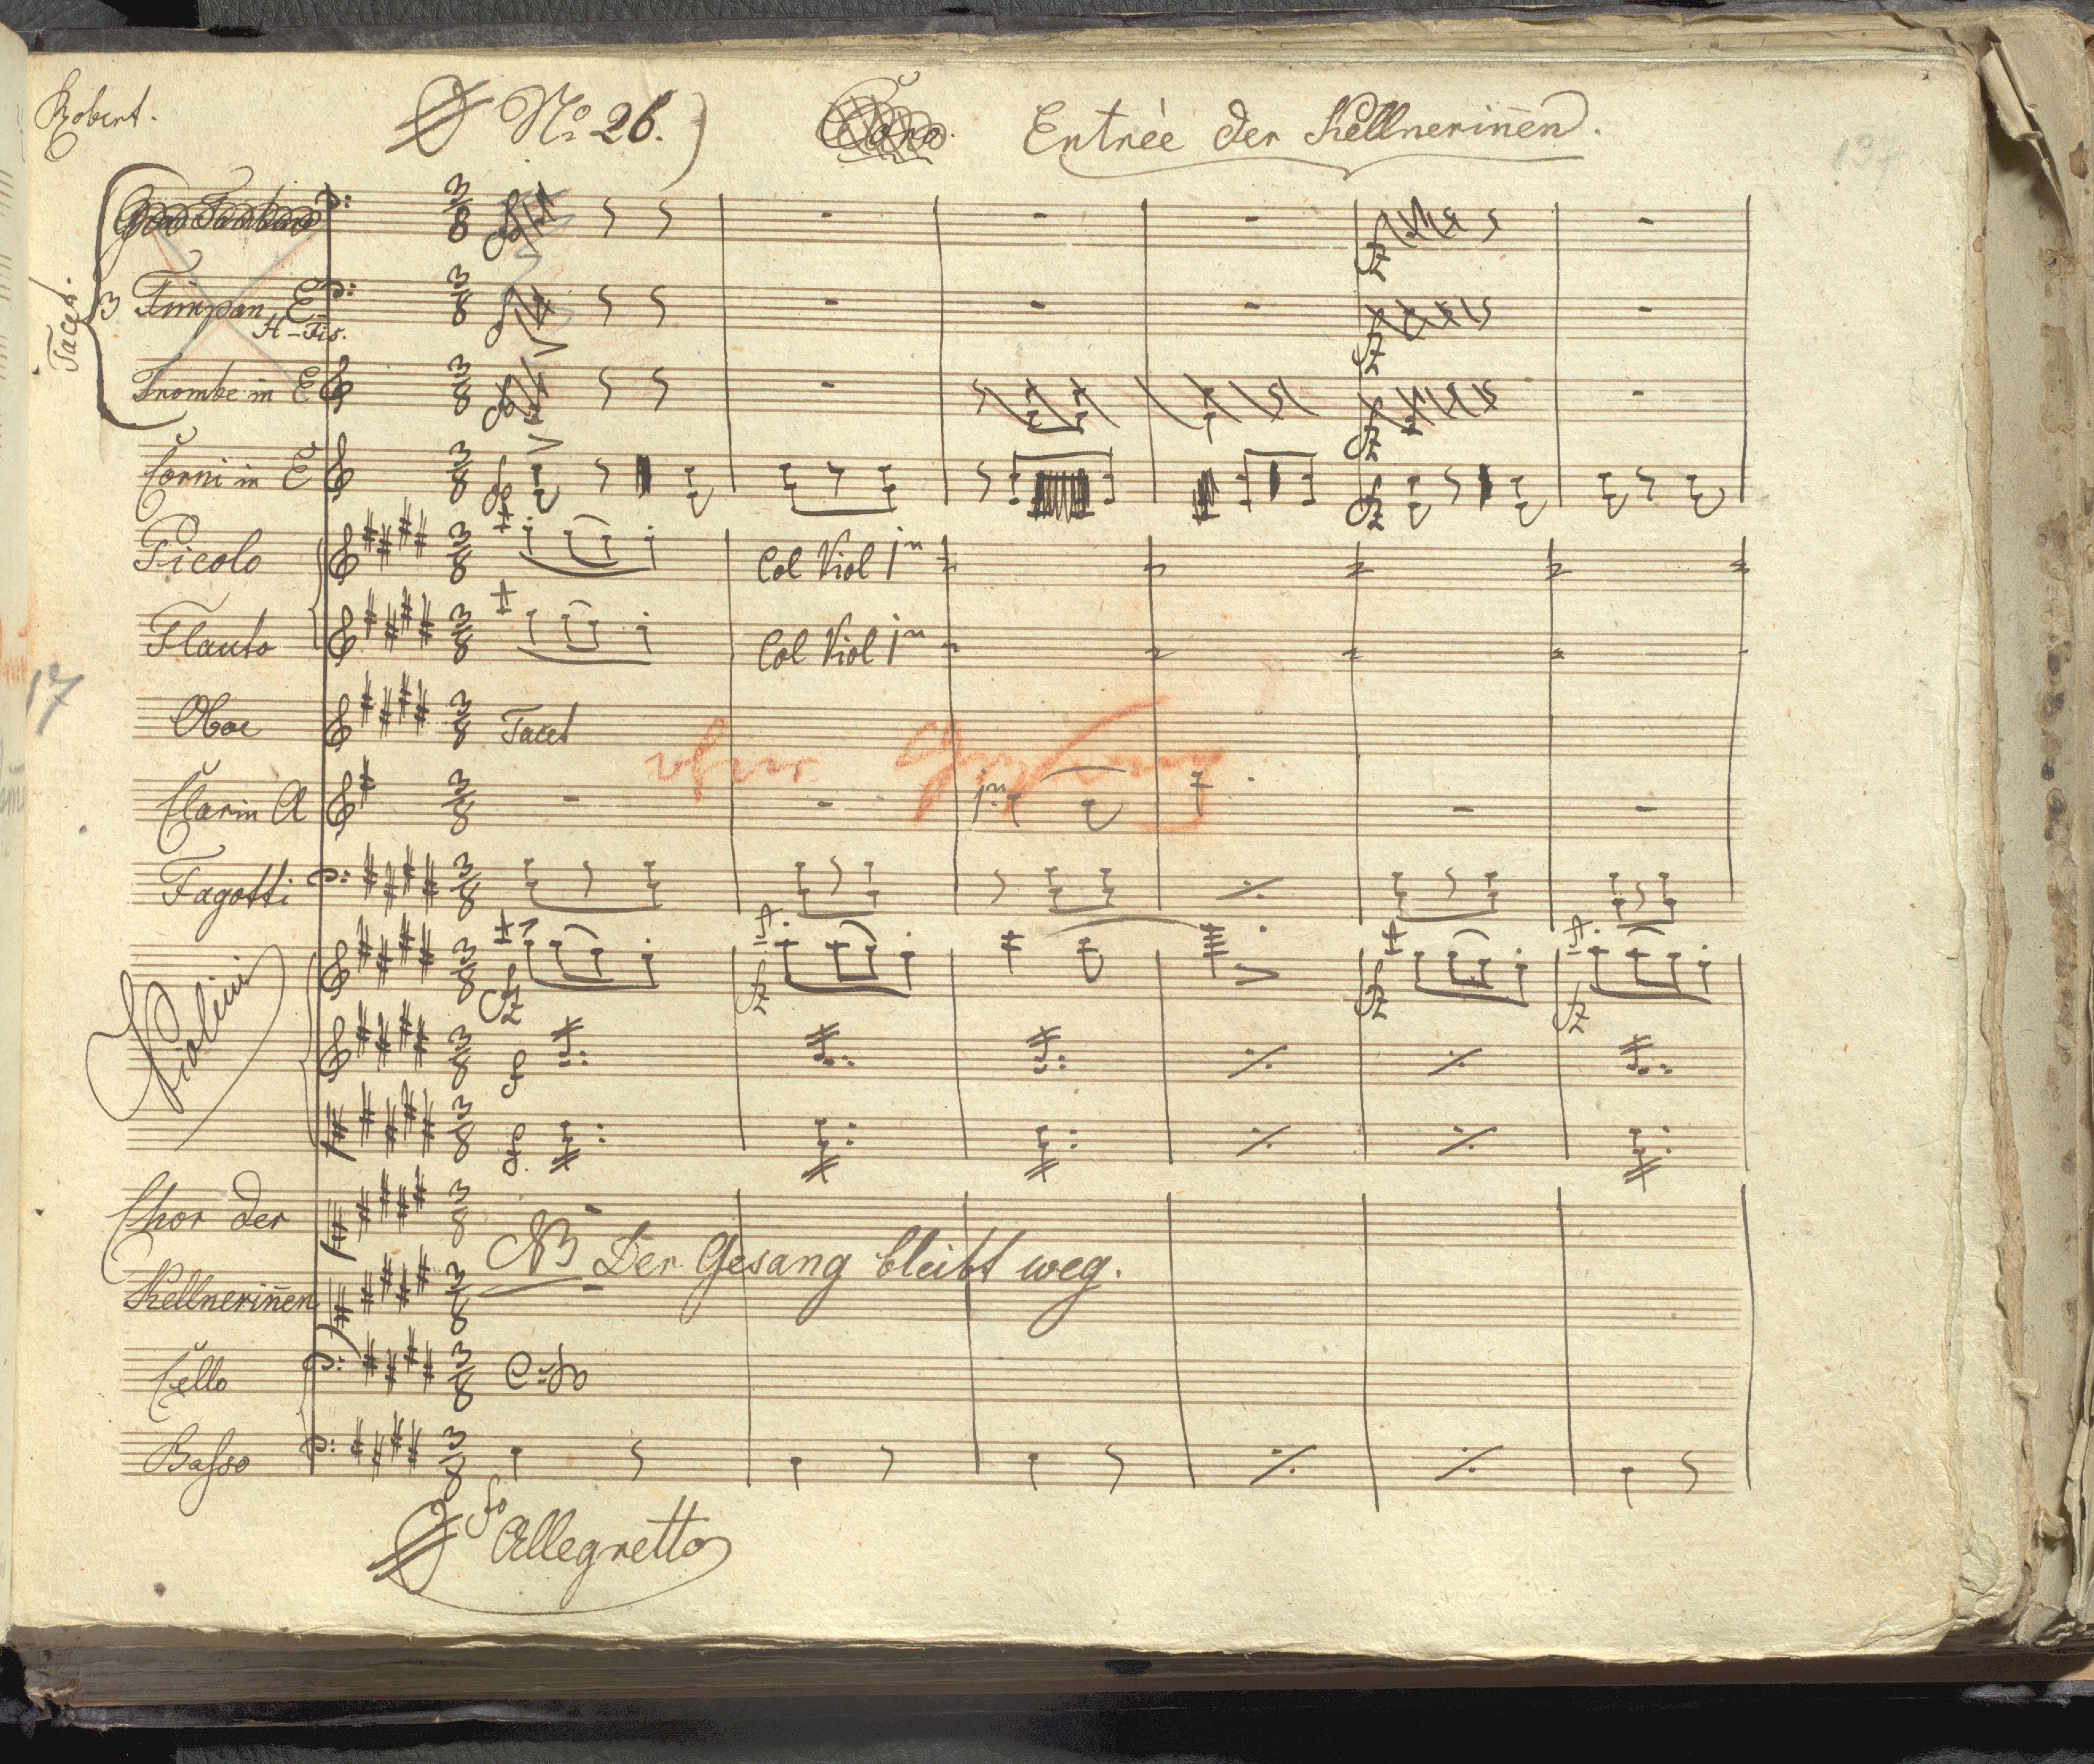 Robert.
No. 26.) Coro. Entrée der Kellnerinen̄.
137
Tacet.
Gran Tamburo
3 Timpan E
H - Fis.
Trombe in E
Corni in E
Picolo Col Viol 1mo
Flauto Col Viol 1mo
17
Oboe Tacet
ohne Gesang
Clarin A 1mo
Fagotti
Violini
Chor der
NB Der Gesang bleibt weg.
Kellnerinn̄en
Cello CoBo
Basso
Allegretto